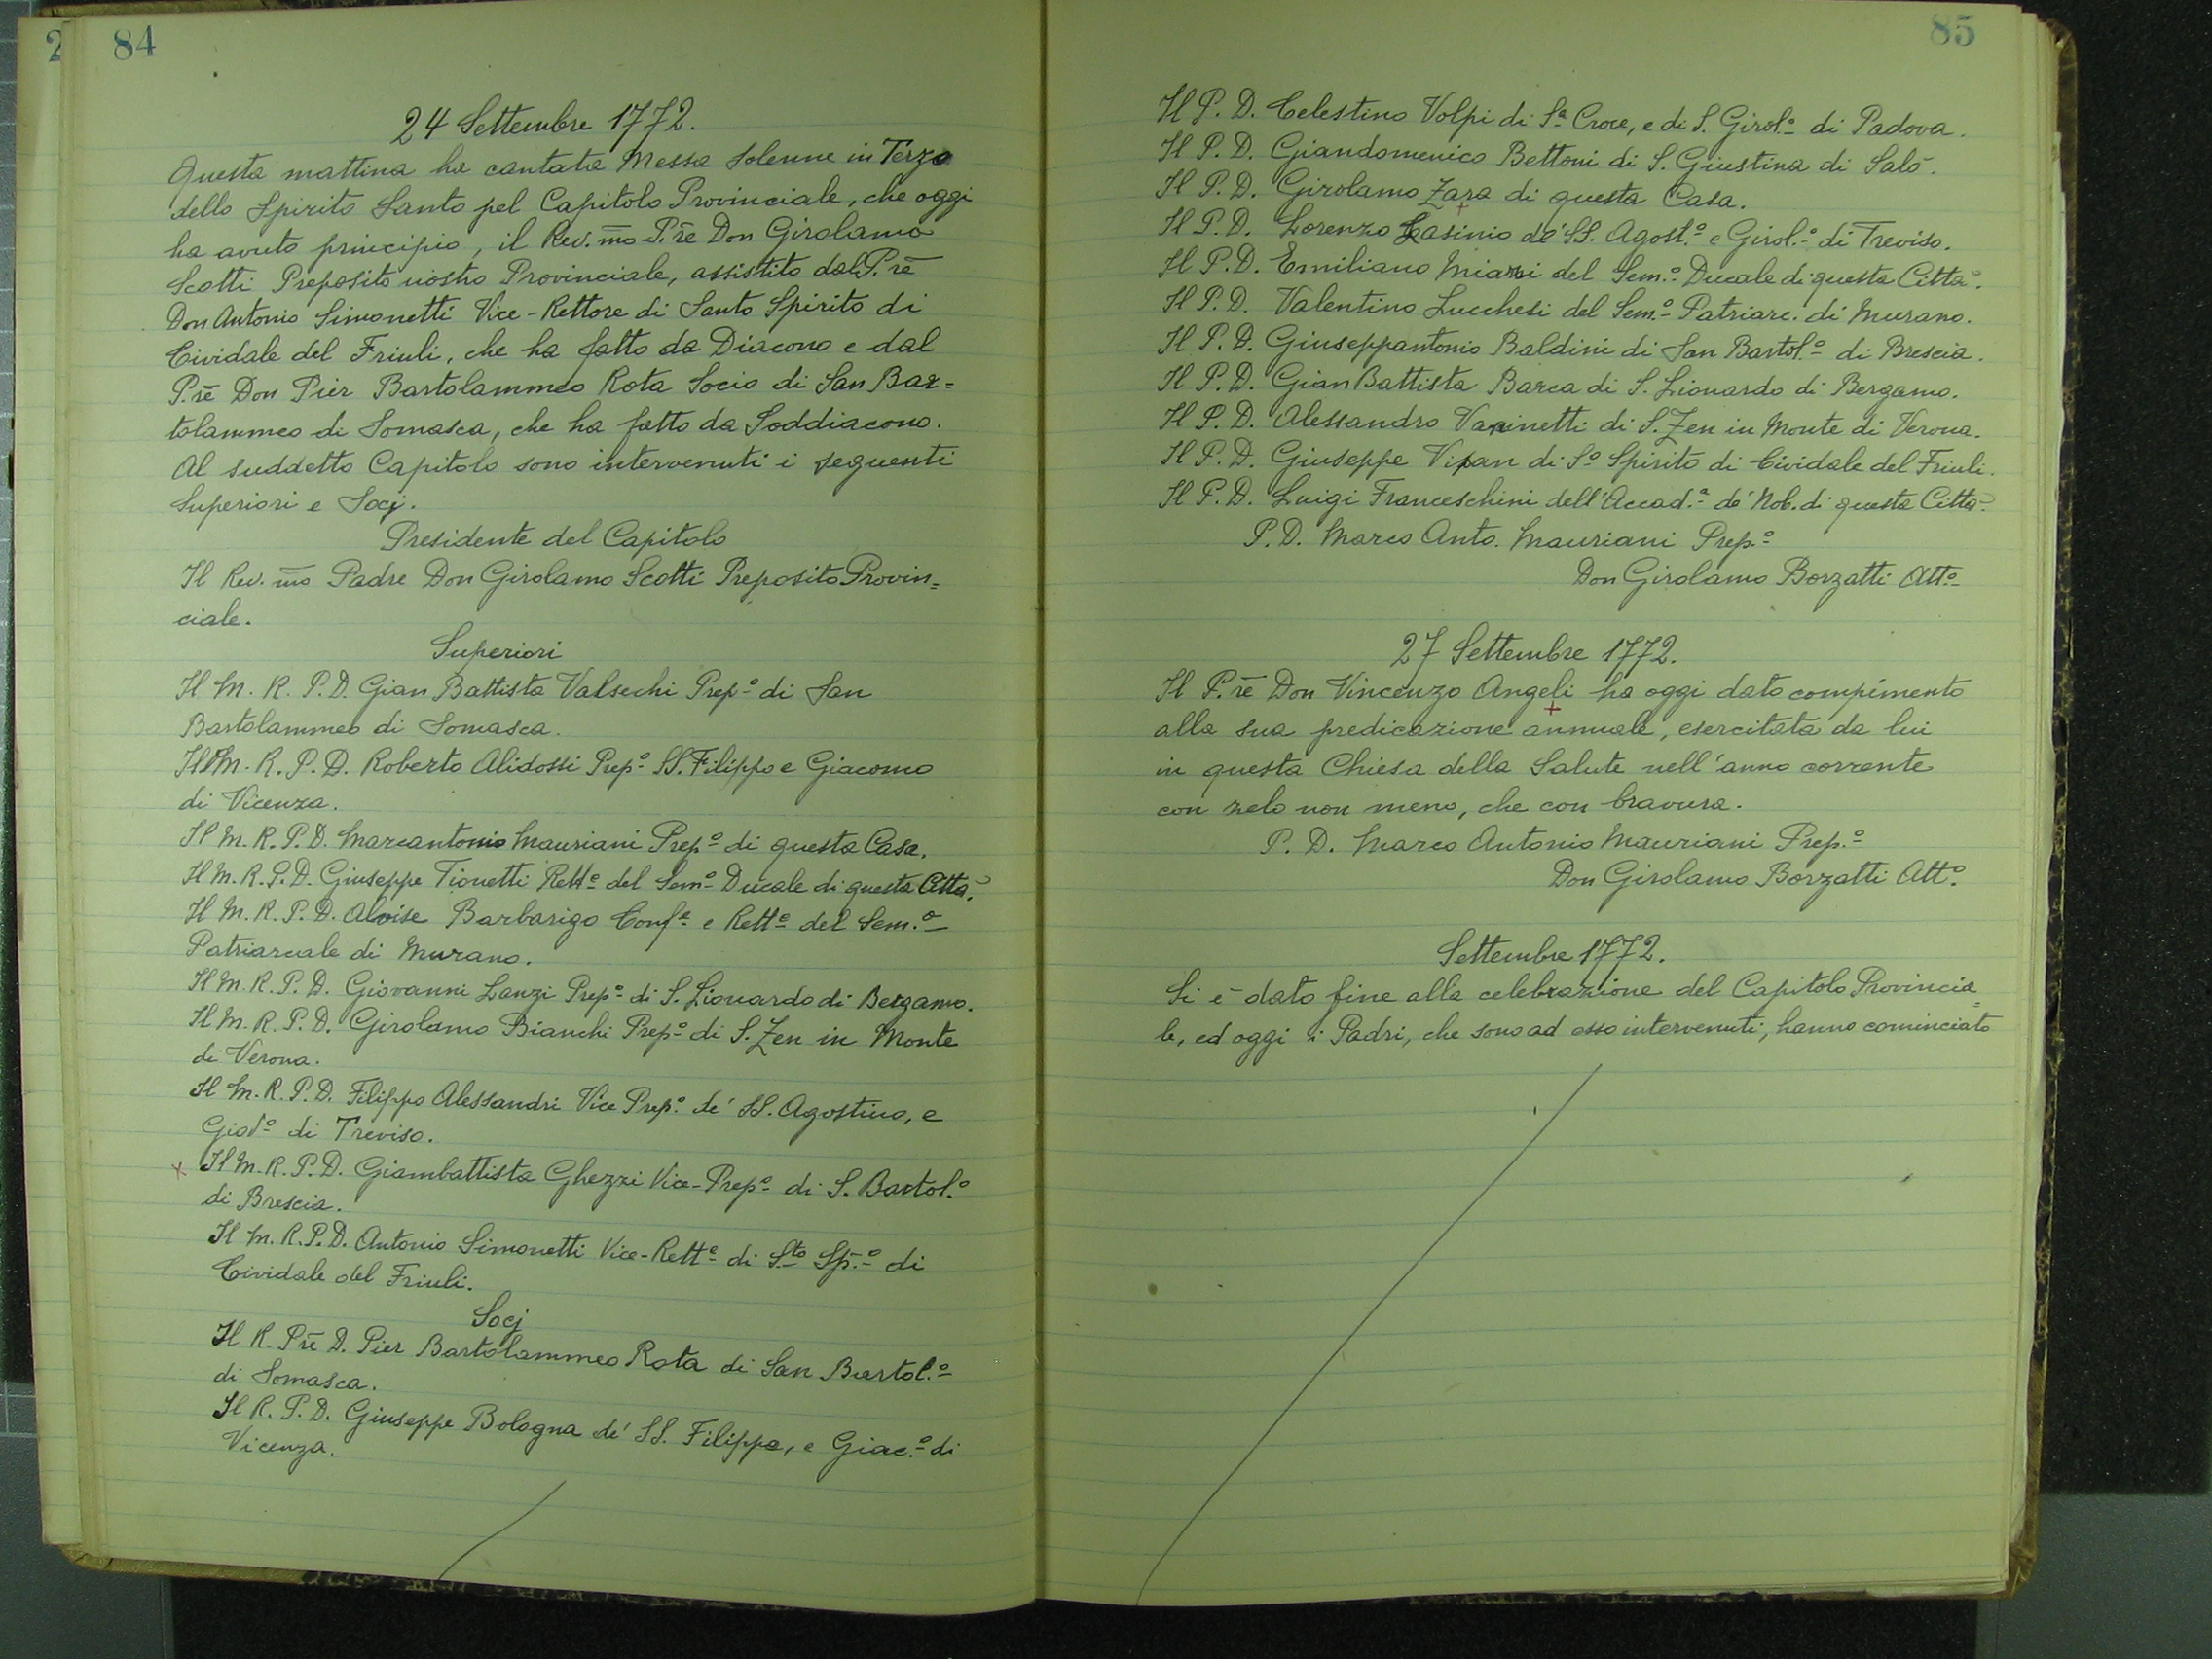 84
24 Settembre 1772.
Questa mattina ha cantata Messa solenne in Terzo
dello Spirito Santo pel Capitolo Provinciale, che oggi
ha avuto principio, il Rev.mo P.re Don Girolamo
Scotti Preposito nostro Provinciale, assistito dal P.re
Don Antonio Simonetti Vice-Rettore di Santo Spirito di
Cividale del Friuli, che ha fatto da Diacono e dal
P.re Don Pier Bartolammeo Rota Socio di San Bar=
tolammeo di Somasca, che ha fatto da Soddiacono.
Al suddetto Capitolo sono intervenuti i seguenti
Superiori e Socj.
Presidente del Capitolo
Il Rev.mo Padre Don Girolamo Scotti Preposito Provin=
ciale.
Superiori
Il M. R. P. D. Gian Battista Valsechi Prep.o di San
Bartolammeo di Somasca.
Il M. R. P. D. Roberto Alidossi Prep.o SS. Filippo e Giacomo
di Vicenza.
Il M. R. P. D. Marcantonio Mauriani Prep.o di questa Casa.
Il M. R. P. D. Giuseppe Tionetti Rett.e del Sem.o Ducale di questa Città.
Il M. R. P. D. Aloise Barbarigo Conf.e e Rett.e del Sem.o
Patriarcale di Murano.
Il M. R. P. D. Giovanni Lanzi Prep.o di S. Lionardo di Bergamo.
Il M. R. P. D. Girolamo Bianchi Prep.o di S. Zen in Monte
di Verona.
Il M. R. P. D. Filippo Alessandri Vice Prep.o de' SS. Agostino, e
di Treviso.
x Il M. R. P. D. Giambattista Ghezzi Vice-Prep.o di S. Bartol.o
di Brescia.
Il M. R. P. D. Antonio Simonetti Vice-Rett.e di S.to Sp.o di
Cividale del Friuli.
Socj
Il R. Pre D. Pier Bartolammeo Rota di San Bartol.o
di Somasca.
Il R. P. D. Giuseppe Bologna de' SS. Filippo, e Giac.o di
Vicenza.
85
Il P. D. Celestino Volpi di S.a Croce, e di S. Girol.o di Padova.
Il P. D. Giandomenico Bettoni di S. Giustina di Salò.
Il P. D. Girolamo Zara di questa Casa.
Il P. D. Lorenzo Lasinio de' SS. Agost.o e Girol.o di Treviso.
Il P. D. Emiliano Miani del Sem.o Ducale di questa Città.
Il P. D. Valentino Lucchesi del Sem.o Patriarc. di Murano.
Il P. D. Giuseppantonio Baldini di San Bartol.o di Brescia.
Il P. D. Gian Battista Barca di S. Lionardo di Bergamo.
Il P. D. Alessandro Vaninetti di S. Zen in Monte di Verona.
Il P. D. Giuseppe Vipan di S.o Spirito di Cividale del Friuli.
Il P. D. Luigi Franceschini dell'Accad.a de' Nob. di questa Città.
P. D. Marco Anto. Mauriani Prep.o
Don Girolamo Borzatti Att.o
27 Settembre 1772.
Il P.re Don Vincenzo Angeli ha oggi dato compimento
alla sua predicazione annuale, esercitata da lui
in questa Chiesa della Salute nell'anno corrente
con zelo non meno, che con bravura.
P. D. Marco Antonio Mauriani Prep.o
Don Girolamo Borzatti Att.o
Settembre 1772.
Si è dato fine alla celebrazione del Capitolo Provincia=
le, ed oggi i Padri, che sono ad esso intervenuti, hanno cominciato